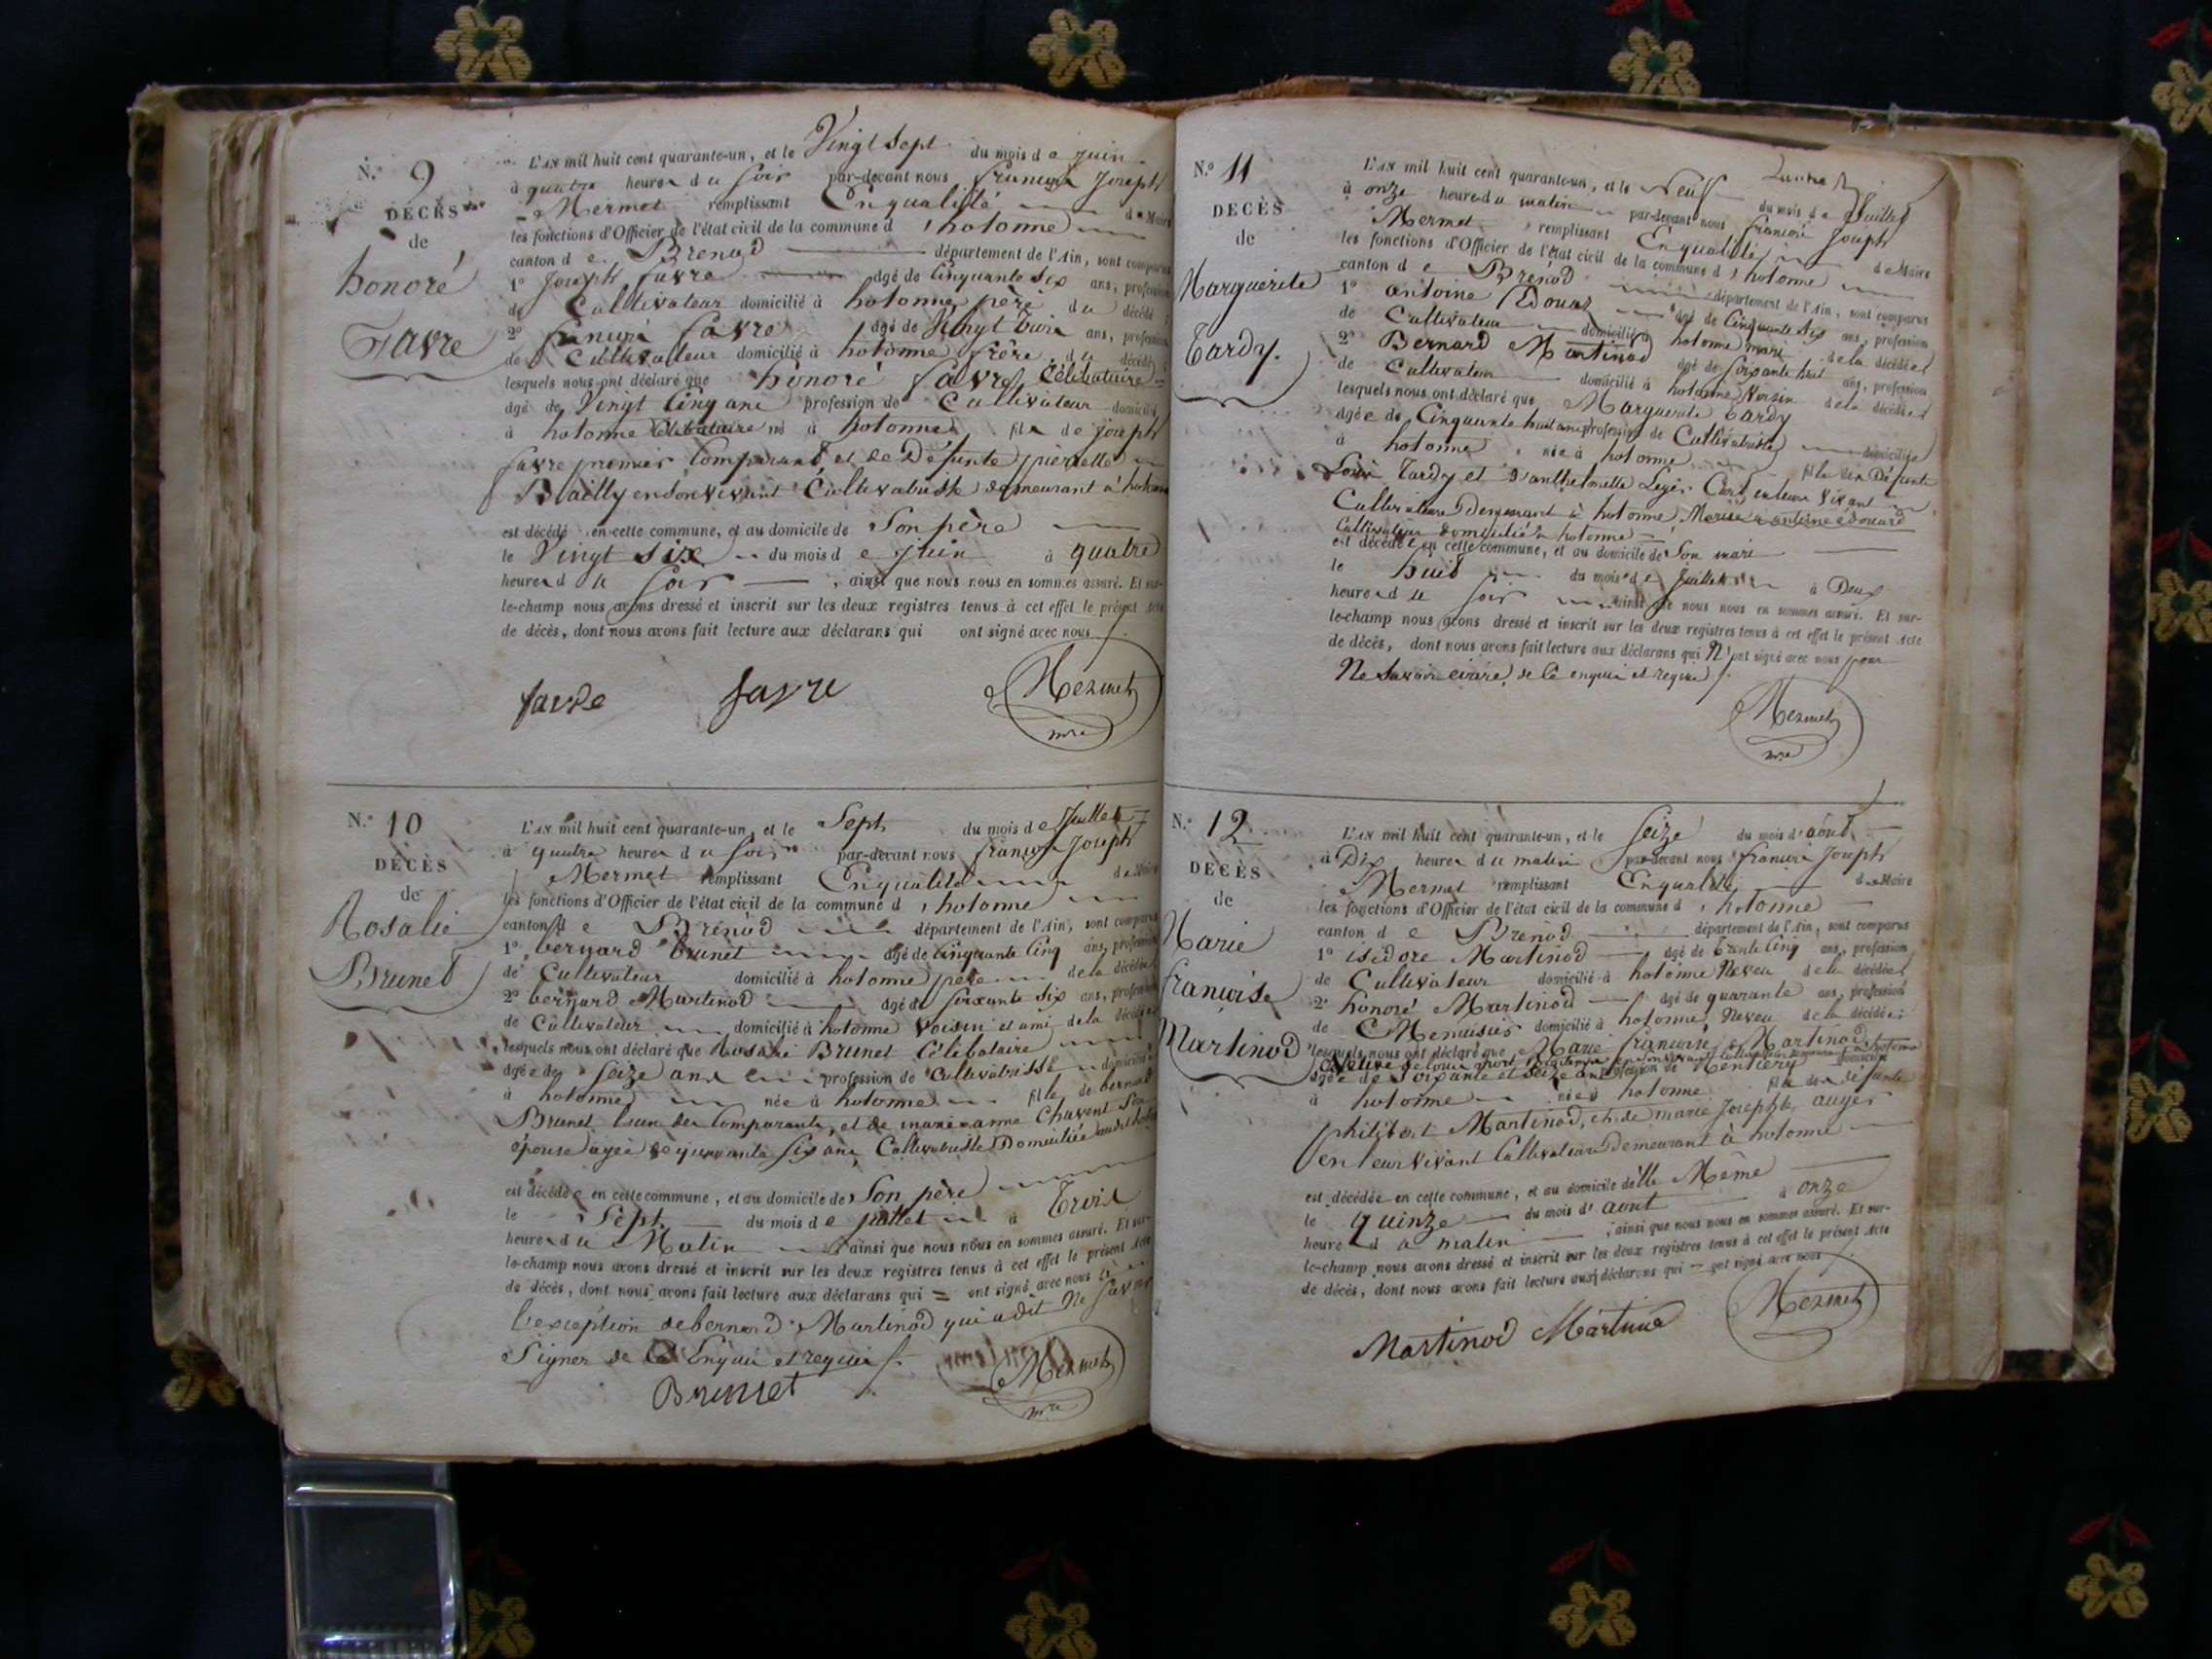 N.° 9
DÉCÈS
de
honoré
Favre
L'AN mil huit cent quarante-un, et le Vingt Sept du mois de juin
à quatre heures du soir par-devant nous françois Joseph
Mermet remplissant En qualité de Maire
les fonctions d'Officier de l'état civil de la commune d'hotonne
canton de Brenod département de l'Ain, sont comparus
1° Joseph favre âgé de Cinquante Six ans, profession
de Cultivateur domicilié à hotonne père du décédé
2° françois favre âgé de Vingt trois ans, profession
de Cultivateur domicilié à hotonne frère du décédé
lesquels nous ont déclaré que honoré favre Célibataire
âgé de Vingt Cinq ans profession de Cultivateur domicilié
à hotonne Célibataire né à hotonne fils de joseph
favre premier Comparant et de Défunte pierrette
Bailly en son vivant Cultivatrisse demeurant à hotonne
est décédé en cette commune, et au domicile de Son père
le Vingt Six du mois de juin à quatre
heures du soir, ainsi que nous nous en sommes assuré. Et sur-
le-champ nous avons dressé et inscrit sur les deux registres tenus à cet effet le présent Acte
de décès, dont nous avons fait lecture aux déclarans qui ont signé avec nous
favre favre Mermet
mre
N.° 10
DÉCÈS
de
Rosalie
Brunet
L'AN mil huit cent quarante-un, et le Sept du mois de Juillet
à quatre heures du soir par-devant nous françois Joseph
Mermet remplissant En qualité de Maire
les fonctions d'Officier de l'état civil de la commune d'hotonne
canton de Brenod département de l'Ain, sont comparus
1° bernard brunet âgé de Cinquante Cinq ans, profession
de Cultivateur domicilié à hotonne père de la décédée
2° bernard Martinod âgé de soixante Six ans, profession
de Cultivateur domicilié à hotonne voisin et ami de la décédée
lesquels nous ont déclaré que Rosalie Brunet Célibataire
âgée de Seize ans profession de Cultivatrisse domiciliée
à hotonne née à hotonne fille de bernard
Brunet l'un des Comparants, et de marie anne Chavent Son
épouse agée de quarante Six ans Cultivatrisse Domiciliée audit hotonne
est décédée en cette commune, et au domicile de Son père
le Sept du mois de juillet à Trois
heures du Matin ainsi que nous nous en sommes assuré. Et sur-
le-champ nous avons dressé et inscrit sur les deux registres tenus à cet effet le présent Acte
de décès, dont nous avons fait lecture aux déclarans qui = ont signé avec nous à
l'exception de bernard Martinod qui a dit ne Savoir
Signer de Ce Enquis et requis
Brunet Mermet
mre
N.° 11
DÉCÈS
de
Marguerite
Tardy
L'AN mil huit cent quarante-un, et le Neuf du mois de Juillet
à onze heures du matin par-devant nous françois Joseph
Mermet remplissant En qualité de Maire
les fonctions d'Officier de l'état civil de la commune d'hotonne
canton de Brenod département de l'Ain, sont comparus
1° antoine Edouard âgé de Cinquante Six ans, profession
de Cultivateur domicilié à hotonne mari de la décédée
2° Bernard Martinod âgé de soixante huit ans, profession
de Cultivateur domicilié à hotonne Voisin de la décédée
lesquels nous ont déclaré que Marguerite Tardy
âgée de Cinquante huit ans profession de Cultivatrisse domiciliée
à hotonne née à hotonne fille des Défunts
Louis Tardy et d'anthelmette en leur Vivant
Cultivateurs Demeurant à hotonne, Mariée à antoine édouard
Cultivateur domicilié à hotonne
est décédée en cette commune, et au domicile de Son mari
le huit du mois de Juillet à Deux
heures du soir ainsi que nous nous en sommes assuré. Et sur-
le-champ nous avons dressé et inscrit sur les deux registres tenus à cet effet le présent Acte
de décès, dont nous avons fait lecture aux déclarans qui N'ont signé avec nous pour
Ne Savoir écrire, de Ce enquis et requis
Mermet
mre
N.° 12
DÉCÈS
de
Marie
françoise
Martinod
L'AN mil huit cent quarante-un, et le Seize du mois d'août
à Dix heures du matin par-devant nous françois Joseph
Mermet remplissant En qualité de Maire
les fonctions d'Officier de l'état civil de la commune d'hotonne
canton de Brenod département de l'Ain, sont comparus
1° isidore Martinod âgé de trente Cinq ans, profession
de Cultivateur domicilié à hotonne Neveu de la décédée
2° honoré Martinod âgé de quarante ans, profession
de Menuisier domicilié à hotonne Neveu de la décédée
lesquels nous ont déclaré que Marie françoise Martinod
Veuve de Louis en son vivant Cultivateur demeurant à hotonne
âgée de soixante et Seize ans profession de Rentière domiciliée
à hotonne née à hotonne fille des défunts
philibert Martinod, et de marie Josephte auger
en leur vivant Cultivateurs Demeurant à hotonne
est décédée en cette commune, et au domicile d'elle Même
le quinze du mois d'aout à onze
heures du matin, ainsi que nous nous en sommes assuré. Et sur-
le-champ nous avons dressé et inscrit sur les deux registres tenus à cet effet le présent Acte
de décès, dont nous avons fait lecture aux déclarans qui ont signé avec nous
Martinod Martinod Mermet